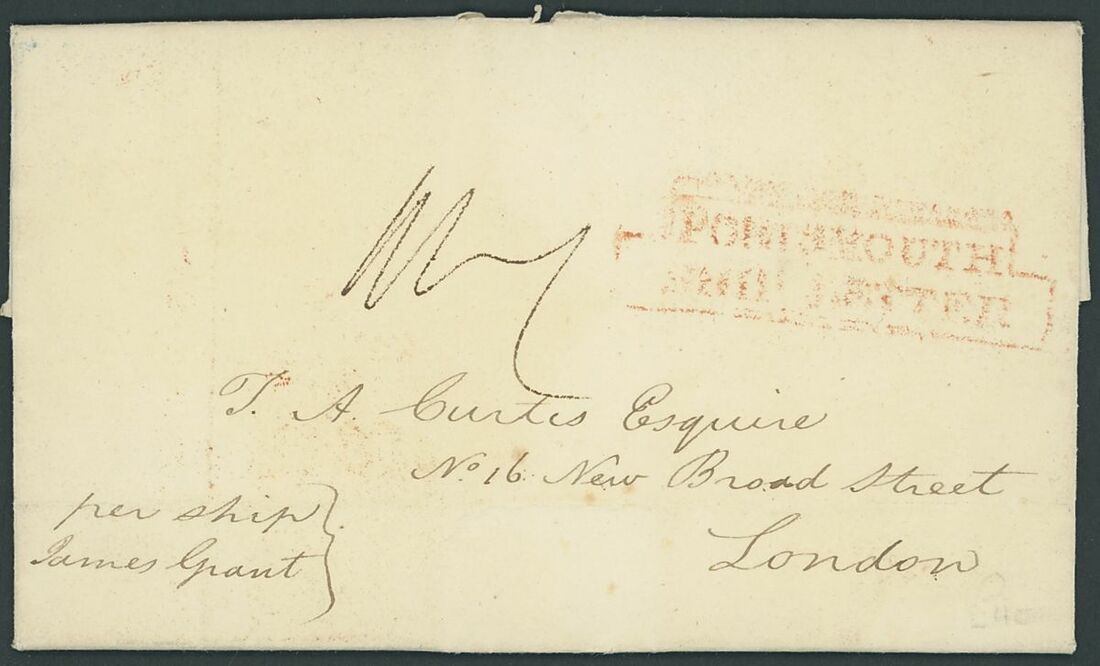 PORTSMOUTH
SHIP LETTER
T. A. Curtis Esquire
No. 16 New Broad Street
London
per ship
James Grant